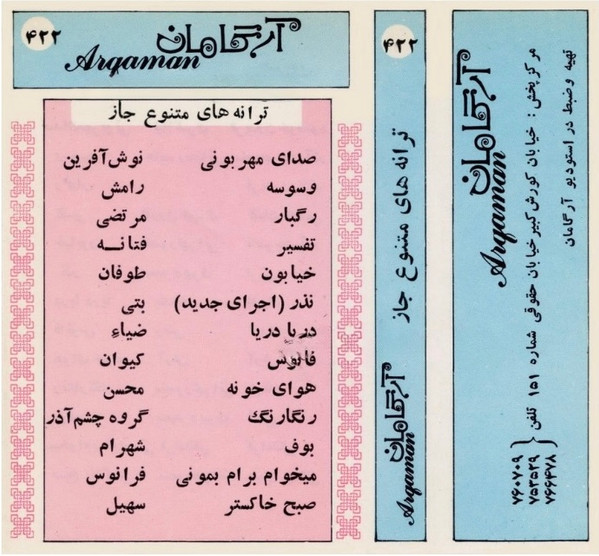 ۴۲۲
آرگامان
Arqaman
ترانه های متنوع جاز
صدای مهربونی نوش آفرین
وسوسه رامش
رگبار مرتضی
تفسیر فتانه
خیابون طوفان
نذر (اجرای جدید) بتی
دریا دریا ضیاء
فانوس کیوان
هوای خونه محسن
رنگارنگ گروه چشم آذر
بوف شهرام
میخوام برام بمونی فرانوس
صبح خاکستر سهیل
۴۲۲
ترانه های متنوع جاز
آرگامان
Arqaman
آرگامان
Arqaman
تهیه و ضبط در استودیو آرگامان
مرکز پخش : خیابان کورش کبیر خیابان حقوقی شماره ۱۵۱ تلفن
۷۶۰۷۰۹
۷۵۳۵۲۹
۷۶۶۴۷۸